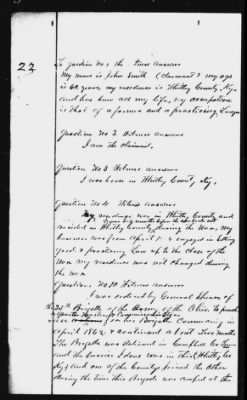 22
To Question No 1 the Witness answers
My name is John Smith (Claimant) my age
is 60 years, my residence is Whitley County Ky.
and has been all my life, my occupation
is that of a farmer and a practising Lawyer
Question No 2 Witness answers
I am the claimant.
Question No 3 Witness answers
I was born in Whitley County Ky.
Question No 4 Witness answers
My residence was in Whitley County and
resided in Whitley County during the War, my
business was from April 1 engaged in selling
goods & practising Law up to the close of the
War my residence was not changed during
the war
Question No 10 Witness answers
I was ordered by General Spears of
25th Brigade of the Army of the Ohio to
for his Brigade Commencing in
April 1862 & continued about two months
The Brigade was stationed in Campbell Co Tenn
and the service I done was in this Whitley Co
Ky, and one of the Countys joined the other
during the time this Brigade was camped at the